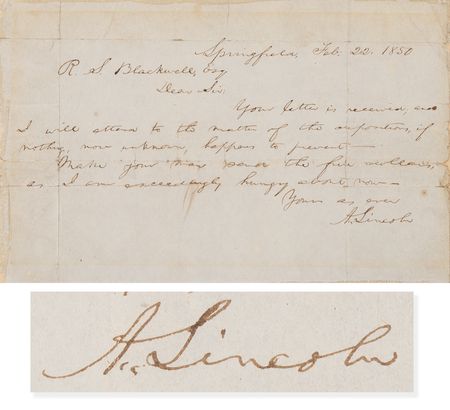 Springfield, Feb. 22. 1850
R. S. Blackwell, Esq
Dear Sir:
Your letter is received, and
I will attend to the matter of the if
nothing, now unknown, happens to prevent—
Make your man send the five dollars,
as I am exceedingly hungry about now—
Yours as ever
A. Lincoln
A. Lincoln